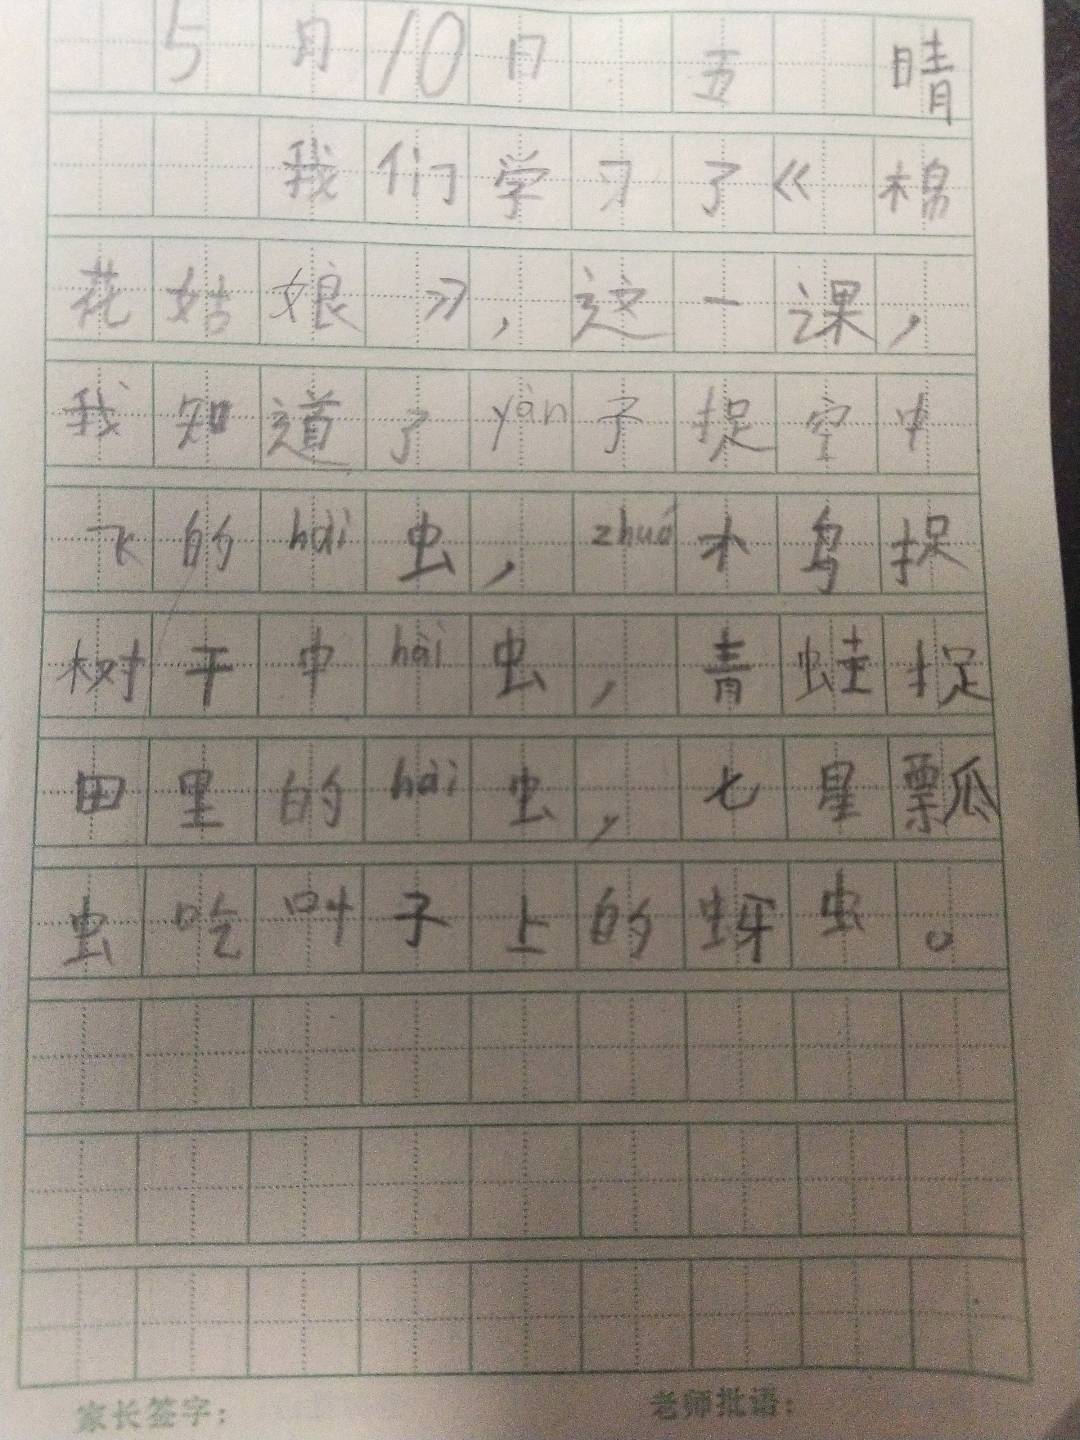 5月10日 五 晴
我们学习了《棉
花姑娘》，这一课，
我知道了yàn子捉空中
飞的hài虫，zhuó木鸟捉
树干中hài虫，青蛙捉
田里的hài虫，七星瓢
虫吃叫子上的蚜虫。
家长签字：
老师批语：